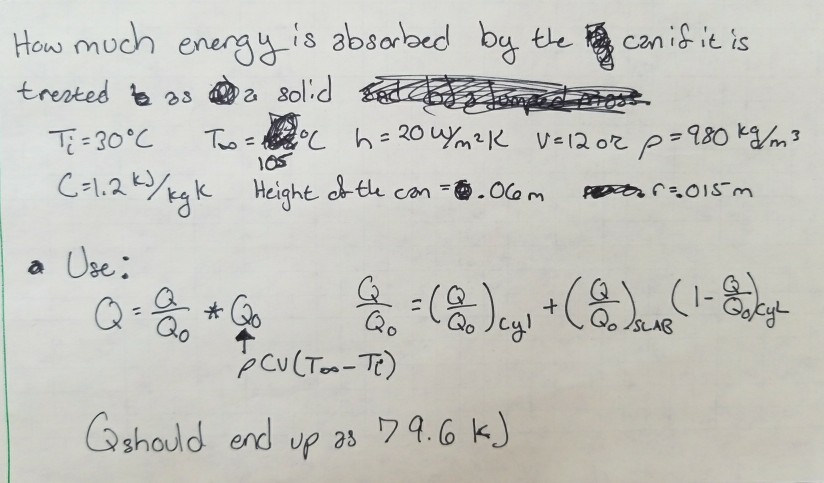 How much energy is absorbed by the can if it is
treated as a solid
Ti=30°C T∞=105°C h=20 W/m²K V=12 oz ρ=980 kg/m³
C=1.2 kJ/kgK Height of the can = .06m r=.015m
• Use:
Q = Q/Q₀ * Q₀ Q/Q₀ = (Q/Q₀)cyl + (Q/Q₀)SLAB (1-Q/Q₀)cyL
↑
ρCV(T∞-Ti)
Q should end up as 79.6 kJ